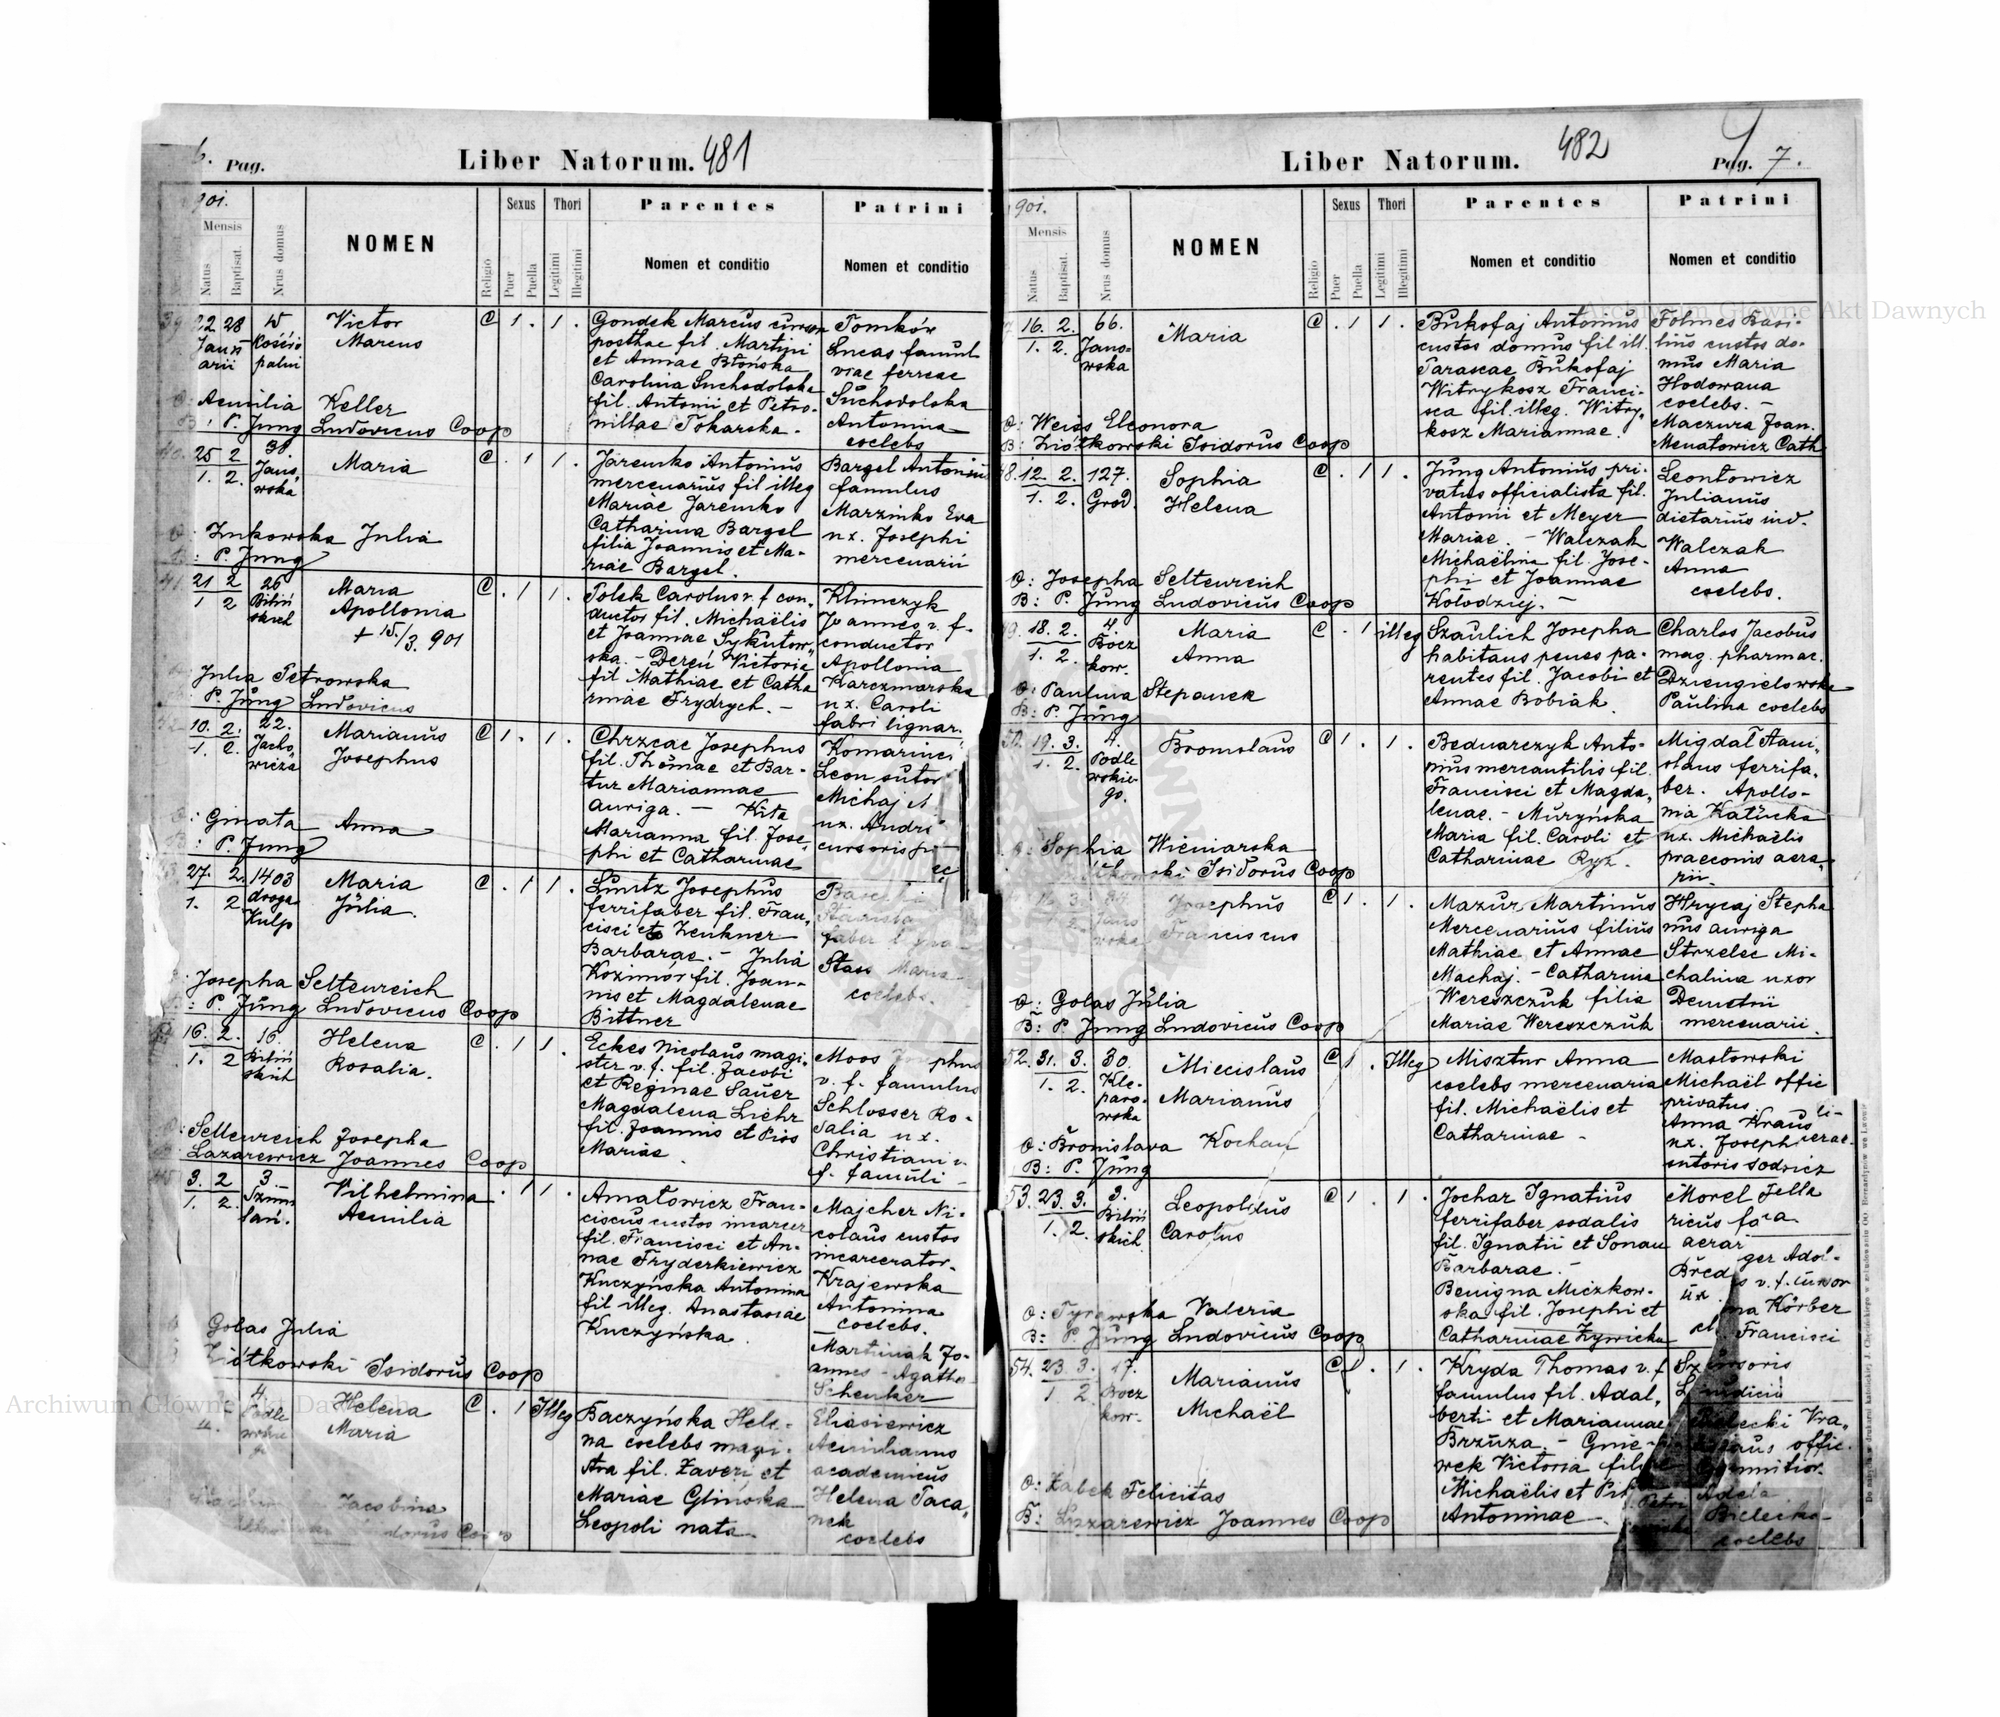 6. Pag.
Liber Natorum. 481
901.
Mensis
Natus
Baptisat.
Nrus domus
NOMEN
Religio
Sexus
Puer
Puella
Thori
Legitimi
Illegitimi
Parentes
Nomen et conditio
Patrini
Nomen et conditio
39 22 28
Janu
arii
Kościo
palni
Victor
Marcus
C 1 . 1 .
Gondek Marcus cursor
posthae fil. Martini
et Annae Błońska
Carolina Suchodolska
fil. Antonii et Petro-
nillae Tokarska.
Tomków
Lucas famul
viae ferreae
Suchodolska
Antonina
coelebs
O: Aemilia Keller
B: P. Jung Ludovicus Coop
40. 25 2
1. 2.
38.
Jano
wska
Maria
C . 1 1 .
Jaremko Antonius
mercenarius fil illeg
Mariae Jaremko
Catharina Bargel
filia Joannis et Ma-
riae Bargel.
Bargel Antonius
famulus
Marzinko Eva
ux. Josephi
mercenarii
O: Zukowska Julia
B: P. Jung
41. 21 2
1 2
26
Biliń
skich
Maria
Apollonia
+ 15./3. 901
C . 1 1 .
Polek Carolus v. f con-
ductor fil. Michaëlis
et Joannae Sykutow-
ska. - Dereń Victoria
fil Mathiae et Catha
rinae Frydrych. -
Klimczyk
Joannes v. f.
conductor
Apollonia
Karczmarska
ux. Caroli
fabri lignar.
Julia Petrowska
P. Jung Ludovicus
42 10. 2.
1. 2.
22.
Jacho
wicza
Marianus
Josephus
C 1 . 1 .
Chrzcac Josephus
fil. Thomae et Bar-
tuz Mariannae
auriga. - Kita
Marianna fil. Jose-
phi et Catharinae
Komarnicki
Leon sutor
Michaj
ux. Andri
cursoris
O: Gmata Anna
B: P. Jung
43. 27. 2.
1. 2
1403
droga
Kulp
Maria
Julia.
C . 1 1 .
Lurtz Josephus
ferrifaber fil. Fran-
cisci et Zeukner
Barbarae. - Julia
Kozimór fil. Joan-
nis et Magdalenae
Bittner
Stanisla
faber
Stass Maria
coelebs.
Josepha Seltenreich
B: P. Jung Ludovicus Coop
44 16. 2.
1. 2
16.
Biliń
skich
Helena
Rosalia.
C . 1 1 .
Eckes Nicolaus magi-
ster v. f. fil. Jacobi
et Reginae Sauer
Magdalena Liehr
fil. Joannis et Piss
Mariae.
Moos Josephus
v. f. famulus
Schlosser Ro-
salia ux.
Christiani v.
f. famuli -
O: Seltenreich Josepha
Lazarewicz Joannes Coop
45 3. 2
1. 2.
3.
Szum
lań.
Vilhelmina
Aemilia
. 1 1 .
Amatowicz Fran-
ciscus custos incarcer
fil. Francisci et An-
nae Fryderkiewicz
Kuczyńska Antonina
fil illeg. Anastasiae
Kuczyńska.
Majcher Ni-
colaus custos
incarcerator.
Krajewska
Antonina
coelebs.
Martiniak Jo-
annes - Agatha
Schenker
Golas Julia
Ziótkowski Isidorus Coop
4.
Podle
wskie
Helena
Maria
C . 1 Illeg
Baczyńska Hele-
na coelebs magi-
stra fil. Xaverj et
Mariae Glinoska
Leopoli nata.
Eliasiewicz
Aemilianus
academicus
Helena Paca-
nek
coelebs
Jacobina
Coop
482
Liber Natorum.
Pag. 7.
901.
Mensis
Natus
Baptisat.
Nrus domus
NOMEN
Religio
Sexus
Puer
Puella
Thori
Legitimi
Illegitimi
Parentes
Nomen et conditio
Patrini
Nomen et conditio
16. 2.
1. 2.
66.
Jano-
wska
Maria
C . 1 1 .
Bukofaj Antonius
custos domus fil ill.
Parascae Bukofaj
Witrykosz Franci-
sca fil. illeg. Witry-
kosz Mariannae.
Folmes Basi-
lius custos do-
mus Maria
Hodowana
coelebs. -
Maczura Joan.
Menatowicz Cath
O: Weiss Eleonora
B: Ziótkowski Isidorus Coop
48. 12. 2.
1. 2.
127.
Gród.
Sophia
Helena
C . 1 1 .
Jung Antonius pri-
vatus officialista fil.
Antonii et Meyer
Mariae. - Walczak
Michaëlina fil. Jose-
phi et Joannae
Kołodziej. -
Leontowicz
Julianus
dietarius ind.
Walczak
Anna
coelebs.
O: Josepha Seltenreich
B: P. Jung Ludovicus Coop
49. 18. 2.
1. 2.
4.
Bocz
kow.
Maria
Anna
C . 1 illeg
Szaulich Josepha
habitans penes pa-
rentes fil. Jacobi et
Annae Bobiak.
Charlos Jacobus
mag. pharmac.
Dziengielowska
Paulina coelebs
O: Paulina Stepanek
B: P. Jung
50. 19. 3.
1. 2.
4.
Podle
wskie-
go.
Bronislaus
C 1 . 1 .
Bednarczyk Anto-
nius mercantilis fil.
Francisci et Magda-
lenae. - Murzyńska
Maria fil. Caroli et
Catharinae Ryz.
Migdał Stani-
slaus ferrifa-
ber. Apollo-
nia Katinka
ux. Michaëlis
praeconis aera-
rii.
O: Sophia Wiśniarska
Isidorus Coop
3.
2
Jano
wska
Josephus
Franciscus
C 1 . 1 .
Mazur Martinus
Mercenarius filius
Mathiae et Annae
Machaj. - Catharina
Wereszczuk filia
Mariae Wereszczuk
Hrycaj Stepha
nus auriga
Strzelec Mi-
chalina uxor
Demetrii
mercenarii.
O: Golas Julia
B: P Jung Ludovicus Coop
52. 31. 3.
1. 2.
30.
Kle-
paro-
wska
Miecislaus
Marianus
C 1 . Illeg
Misztur Anna
coelebs mercenaria
fil. Michaëlis et
Catharinae -
Masłowski
Michaël offic
privatus
Anna Kraus
ux. Joseph
sutoris sodricz
O: Bronislava Kochan
B: P. Jung
53. 23. 3.
1. 2.
3.
Biliń
skich.
Leopoldus
Carolus
C 1 . 1 .
Jochar Ignatius
ferrifaber sodalis
fil. Ignatii et Sonau
Barbarae. -
Benigna Miczkow-
ska fil. Josephi et
Catharinae Zywicka
Morel Fella
ricus
aerar
ger Adol-
v. f.
na Körber
Francisci
O: Tyrawska Valeria
B: P. Jung Ludovicus Coop
54. 23. 3.
1 2.
17.
Bocz
kow.
Marianus
Michaël
C 1 . 1 .
Kryda Thomas v. f
famulus fil. Adal-
berti et Mariannae
Brzuza. - Gnie-
wek Victoria filia
Michaëlis et
Antoninae
Bielecki
offic.
Adela
Bielecka
coelebs
O: Zabek Felicitas
B: Lazarewicz Joannes Coop
Archiwum Główne Akt Dawnych
Archiwum Główne Akt Dawnych